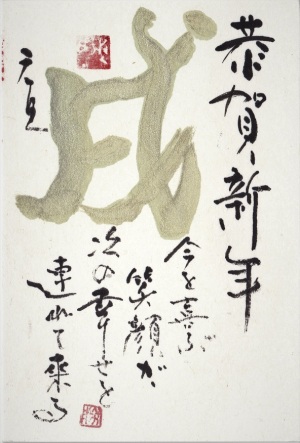 恭賀新年
戌
元旦
今を喜ぶ
笑顔が
次の幸せを
連れて来る